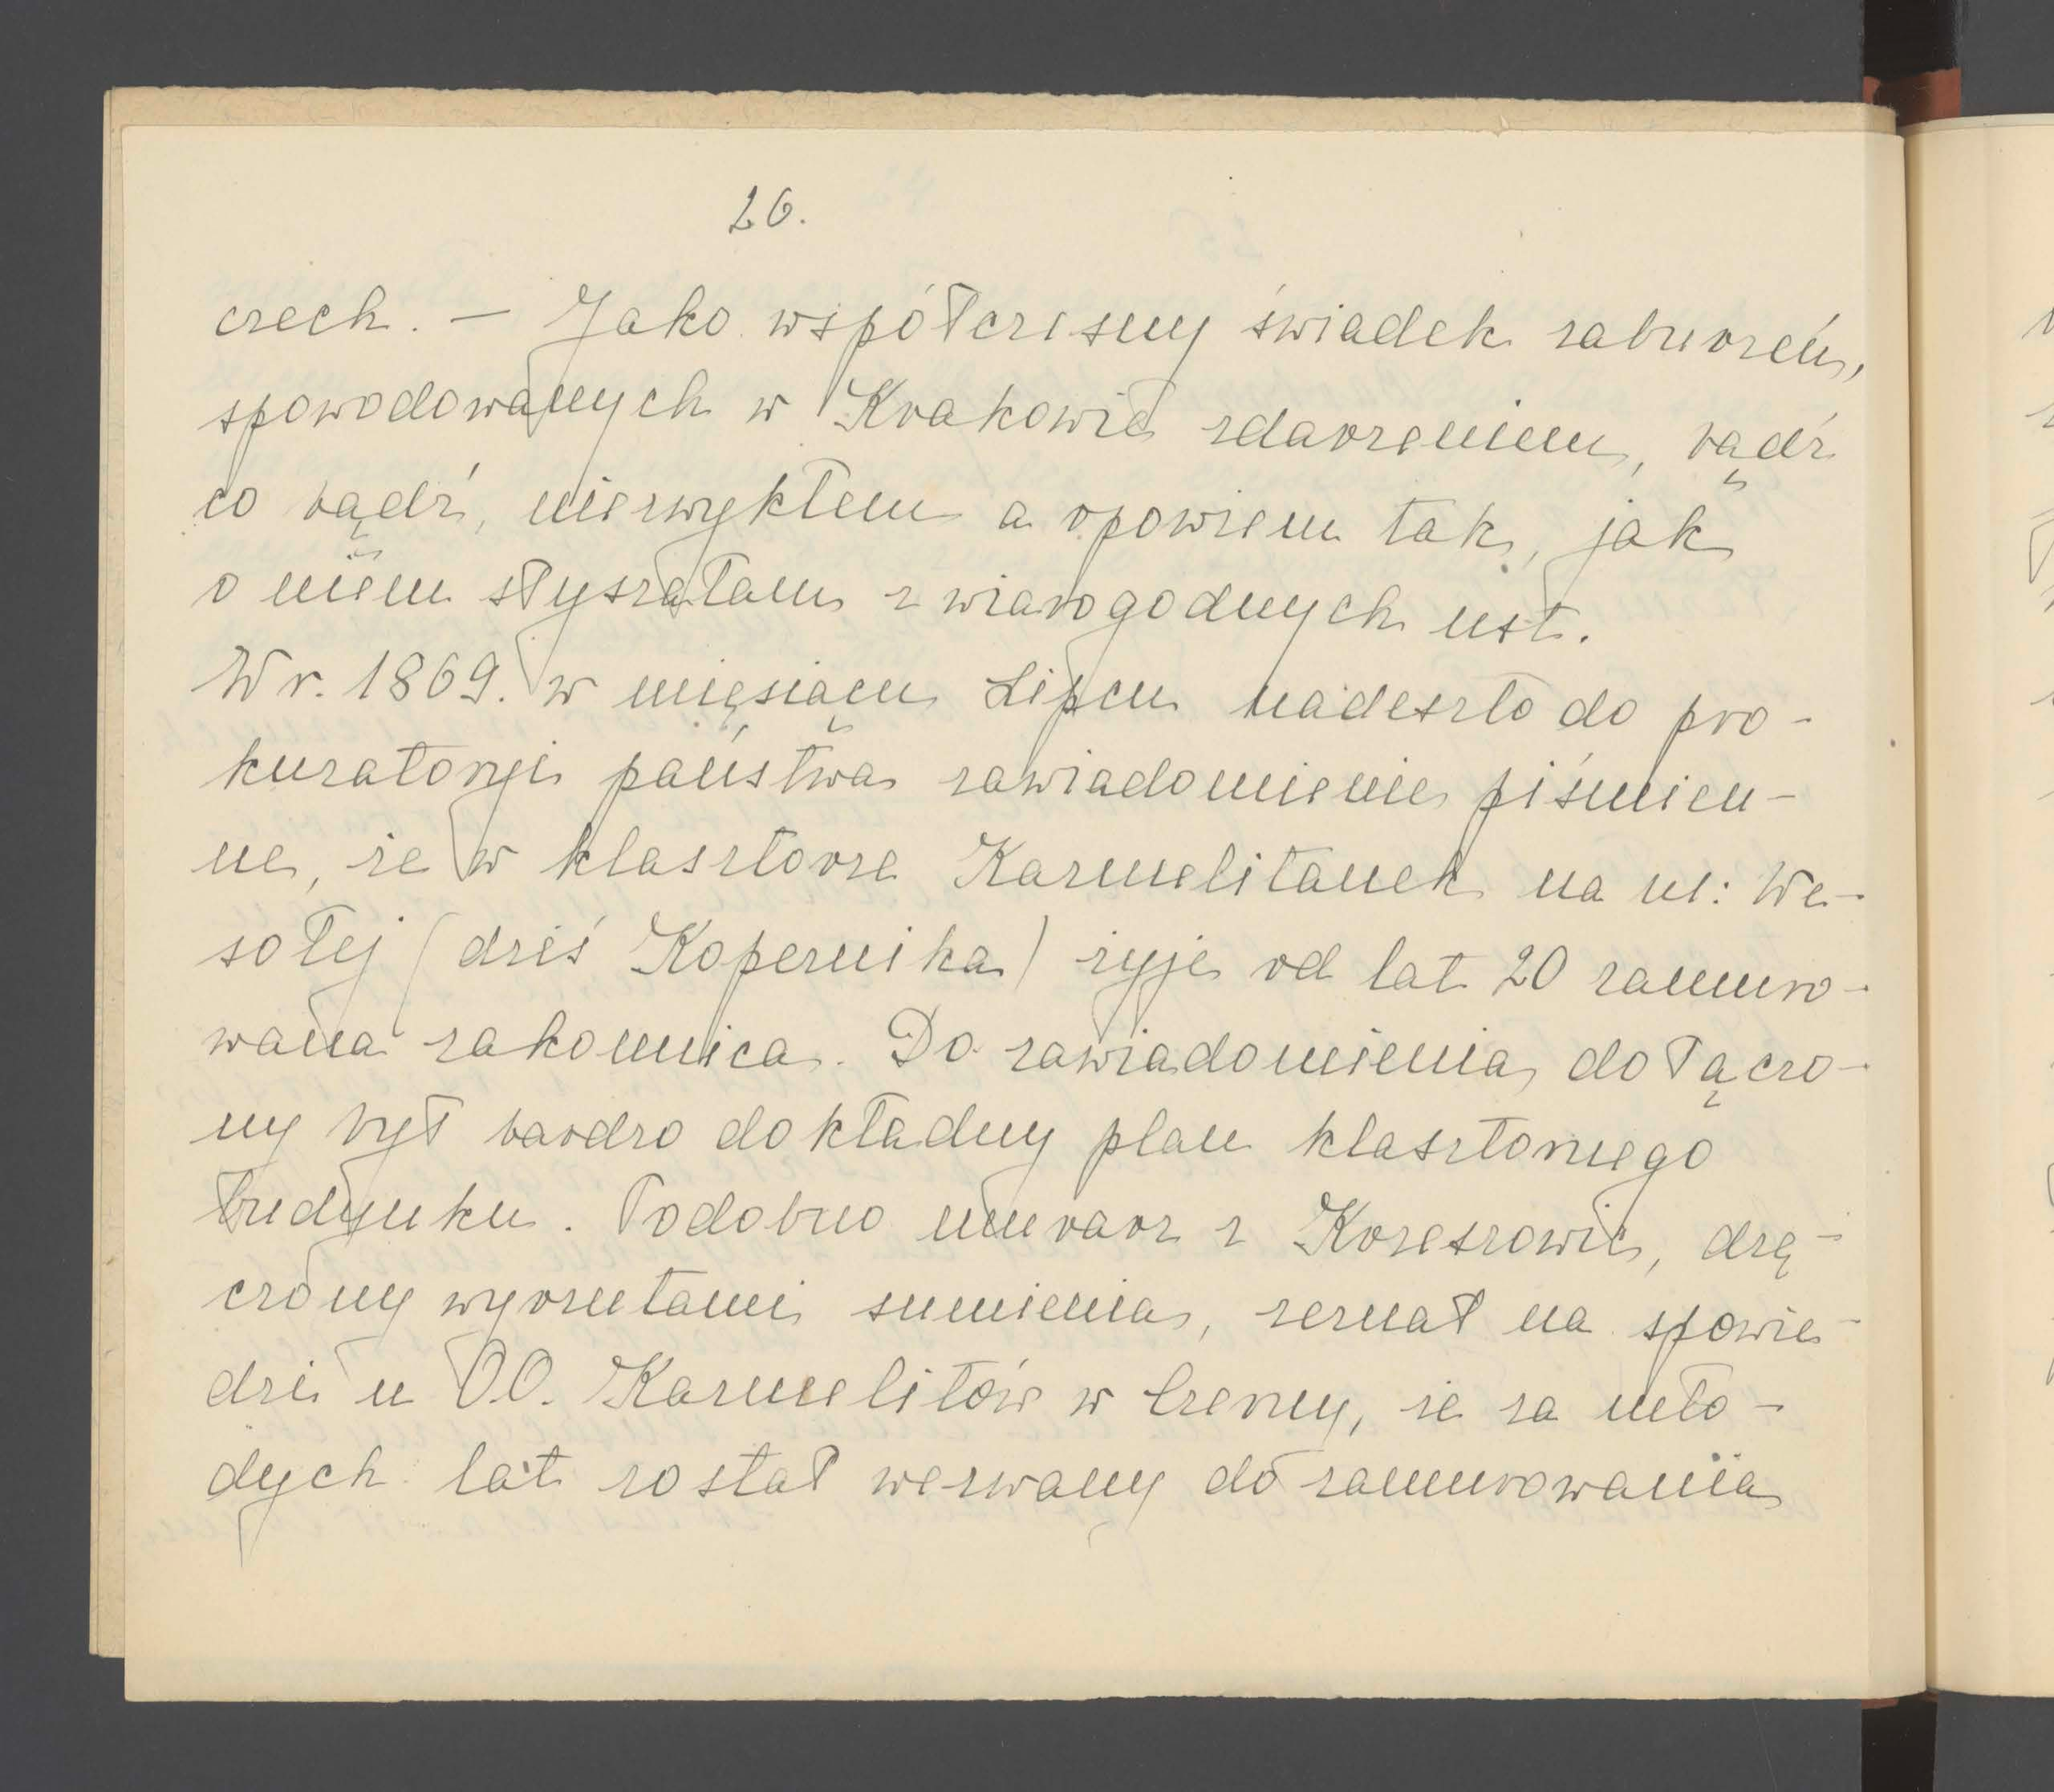 26.
czech. — Jako współczesny świadek zaburzeń,
spowodowanych w Krakowie zdarzeniem, bądź
co bądź, niezwykłem a opowiem tak, jak
o niem słyszałam z wiarogodnych ust.
W r. 1869. w miesiącu Lipcu nadeszło do pro-
kuratoryi państwa zawiadomienie piśmien-
ne, że w klasztorze Karmelitanek na ul: We-
sołej (dziś Kopernika) żyje od lat 20 zamuro-
wana zakonnica. Do zawiadomienia dołączo-
ny był bardzo dokładny plan klasztornego
budynku. Podobno murarz z Krzeszowic, drę-
czony wyrzutami sumienia, zeznał na spowie-
dzi u OO. Karmelitów w Czerny, że za mło-
dych lat został wezwany do zamurowania